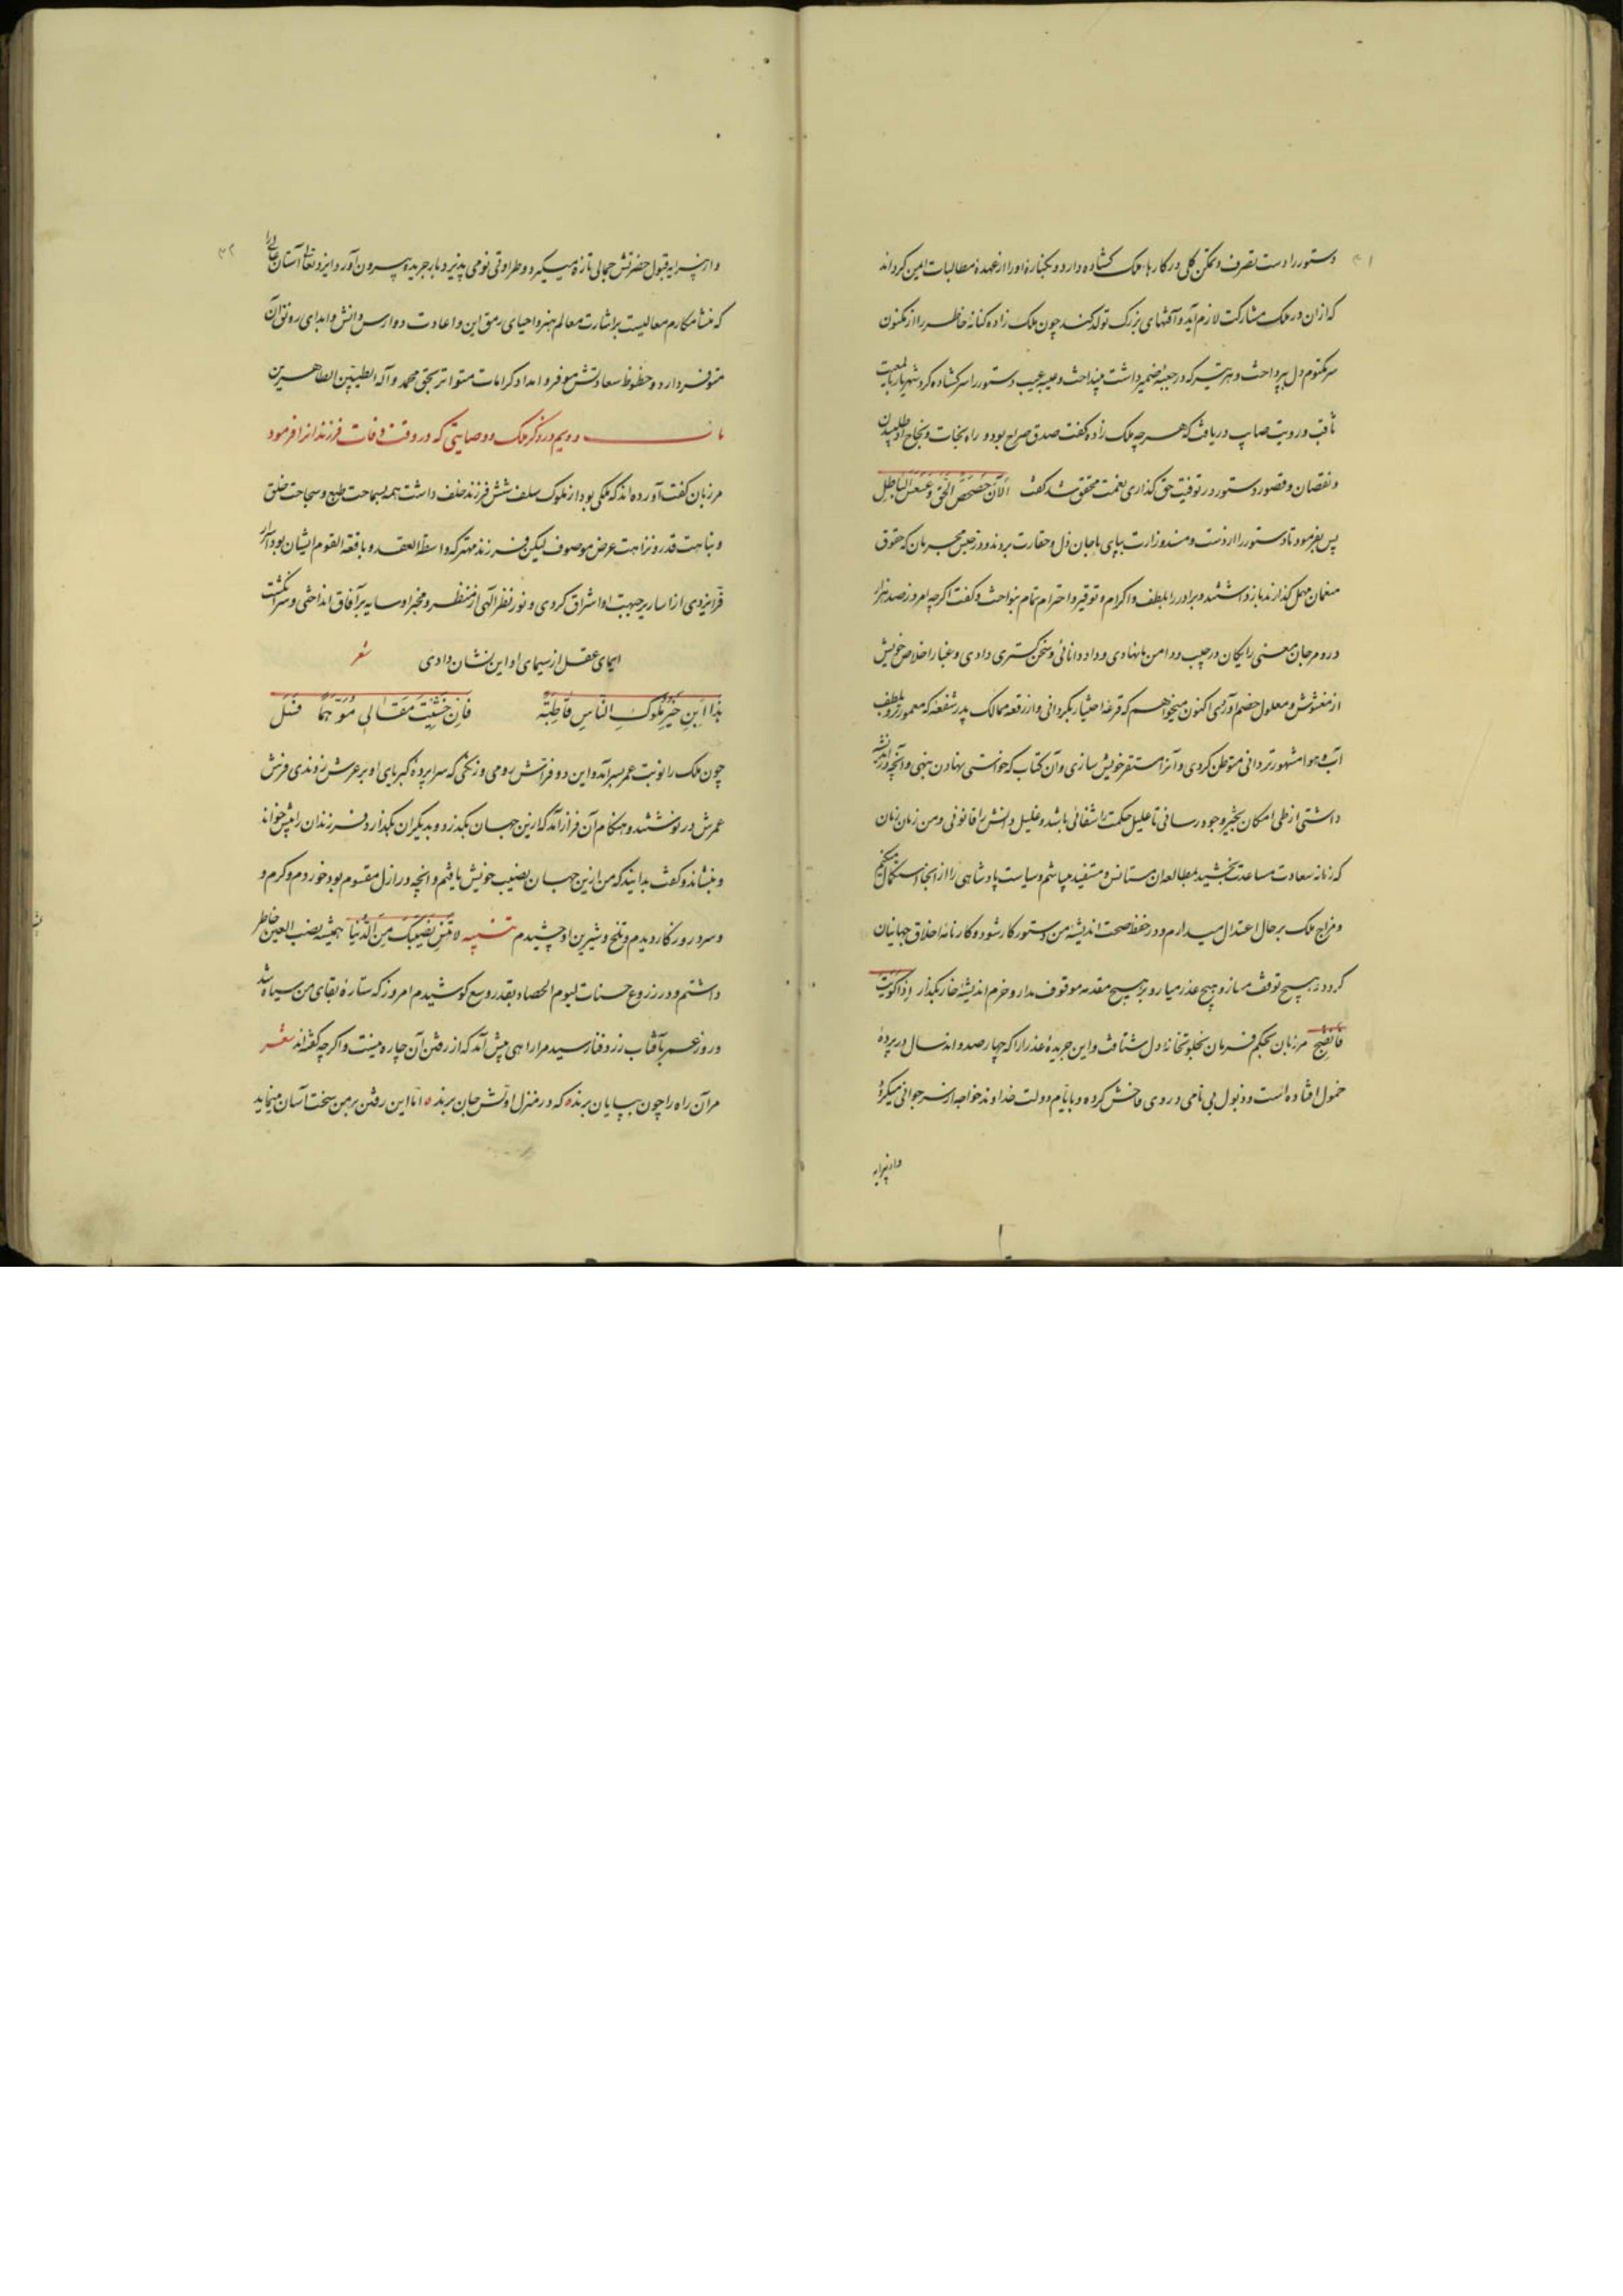 ۳۱
دستور را دست تصرف و تمکن کلی در کارها ملک گشاده دارد و یکباره او را از عهدهٔ مطالبات ایمن گرداند
که ازان در ملک مشارکت لازم آید و آفتهای بزرگ تولد کند چون ملک زاده کنانهٔ خاطر را از مکنون
سر مکتوم دل بپرداخت و هر تیر که در جعبهٔ ضمیر داشت بینداخت و عیبهٔ عیب دستور را سر گشاده کرد شهریار بالمعیت
ثاقب و رویت صایب دریافت که هر چه ملک زاده گفت صدق صراح بود و راه نجات و نجاح او طلبیدن
و نقصان و قصور دستور در توفیت حق گذاری نعمت محقق شد گفت الآن حصحص الحق و عسعس الباطل
پس بفرمود تا دستور را از دست و مسند وزارت بپای ماجان ذل و حقارت بردند و در حبس مجرمان که حقوق
منعمان مهمل گذارند باز داشتند و برادر را بلطف و اکرام و توقیر و احترام تمام بنواخت و گفت اگر چه امروز صد هزار
در و مرجان معنی رایگان در جیب و دامن ما نهادی و داد دانائی و سخن گستری دادی و غبار اخلاص خویش
از مغشوش و معلول خصم آوردی اکنون میخواهم که قرعهٔ اختیار بگردانی و از رقعهٔ ممالک پدر شقعهٔ که معمورتر و بلطف
آب و هوا مشهورتر دانی متوطن کردی و آنرا مستقر خویش سازی و آن کتاب که خواستی نهادن بنهی و آنچه در اندیشه
داشتی از طی امکان بحیز وجود رسانی تا علیل حکمت را شفائی باشد و غلیل دانش را قانونی و من زمان زمان
که زمانه سعادت مساعدت بخشید بمطالعهٔ ان مستانس و مستفید میباشم و سیاست پادشاهی را از انجا استکمال میکنم
و مزاج ملک بر حال اعتدال میدارم و در حفظ صحت اندیشهٔ من دستور کار شود و کارنامهٔ اخلاق جهانیان
گردد بهیچ توقف مساز و هیچ عذر میار و بر هیچ مقدمه موقوف مدار و خرم اندیشهٔ خار بگذار اذا کویت
فانضج مرزبان بحکم فرمان بخلوتخانهٔ دل شتافت و این جریدهٔ عذرا را که چهارصد و اند سال در پردهٔ
خمول افتاده است و ذبول بی نامی در وی فاحش کرده و بایام دولت خداوند خواجه از سر جوانی میگیرد
و از پیرایه
۳۲
و از پیرایهٔ قبول حضرتش جمالی تازه میگیرد و طراوتی نو می پذیرد باز جریده بیرون آورد ایزد تعالی آستان عالی را
که منشا مکارم معالیست براشارت معالم هنر و احیای رمق این و اعادت دوارس دانش و ابدای رونق آن
متوفر دارد و حظوظ سعادتش موفر و امداد کرامات متواتر بحق محمد و آله الطیبین الطاهرین
باب دویم در ذکر ملک و وصایتی که در وقت وفات فرزندانرا فرمود
مرزبان گفت آورده اند که ملکی بود از ملوک سلف شش فرزند خلف داشت همه بسماحت طبع و سجاحت خلق
و نباهت قدر و نزاهت عرض موصوف لیکن فرزند مهتر که واسطة العقد و باقعة القوم ایشان بود اسرار
فر ایزدی از اساریر جبهت او اشراق کردی و نور نظر الهی از منظر و مخبر او سایه بر آفاق انداختی و سر انگشت
ایمای عقل از سیمای او این نشان دادی شعر
هذا ابن خیر ملوک الناس قاطبة فان خشیت مقالی موّهما فسل
چون ملک را نوبت عمر بسر آمد و این دو فراش رومی و زنگی که سراپردهٔ کبریای او بر عرش زدندی فرش
عمرش در نوشتند و هنگام آن فراز آمد که ازین جهان بگذرد و بدیگران بگذارد فرزندان را پیش خواند
و بنشاند و گفت بدانید که من ازین جهان نصیب خویش یافتم و انچه در ازل مقسوم بود خوردم و گرم و
و سرد روزگار دیدم و تلخ و شیرین او چشیدم تنبیه لا تنس نصیبک من الدنیا همیشه نصب العین خاطر
داشتم و در زروع حسنات لیوم الحصاد بقدر وسع کوشیدم امروز که ستارهٔ بقای من سیاه شد
و روز عمر بآفتاب زرد فنا رسید مرا راهی پیش آمد که از رفتن آن چاره نیست و اگر چه گفته اند شعر
مر آن راه را چون بپایان برند ۵ که در منزل اولش جان برند ۵ اما این رفتن بر من سخت آسان مینماید